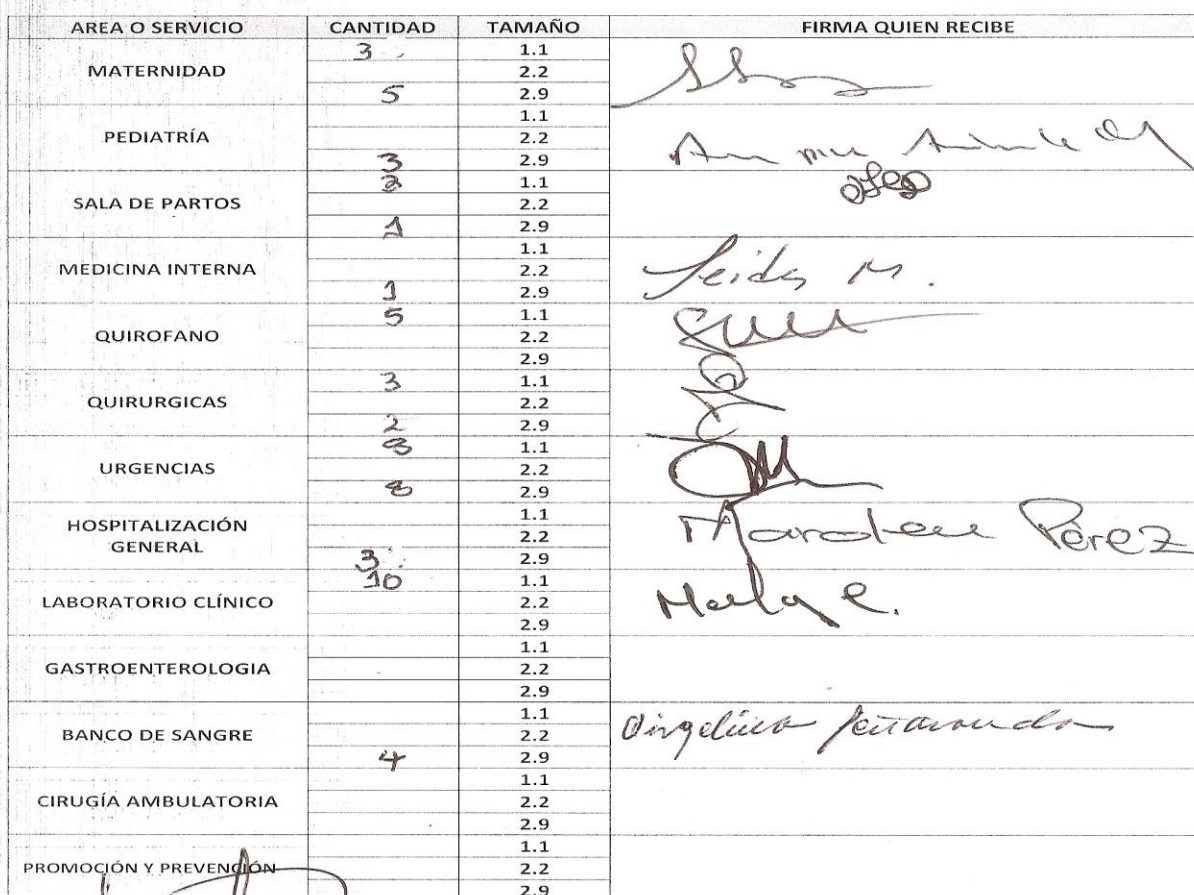 AREA O SERVICIO CANTIDAD TAMAÑO FIRMA QUIEN RECIBE
MATERNIDAD 3 1.1
2.2
5 2.9
PEDIATRÍA 1.1
2.2
3 2.9
SALA DE PARTOS 2 1.1
2.2
1 2.9
MEDICINA INTERNA 1.1
2.2 M.
1 2.9
QUIROFANO 5 1.1
2.2
2.9
QUIRURGICAS 3 1.1
2.2
2 2.9
URGENCIAS 8 1.1
2.2
8 2.9
HOSPITALIZACIÓN GENERAL 1.1
2.2 Pérez
3 2.9
LABORATORIO CLÍNICO 10 1.1
2.2
2.9
GASTROENTEROLOGIA 1.1
2.2
2.9
BANCO DE SANGRE 1.1
2.2
4 2.9
CIRUGÍA AMBULATORIA 1.1
2.2
2.9
PROMOCIÓN Y PREVENCIÓN 1.1
2.2
2.9